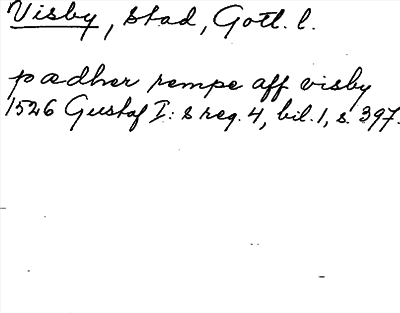 Visby, stad, Gotl. l.
pædher rempe aff visby
1526 Gustaf I:s reg. 4, bil. 1, s. 397.